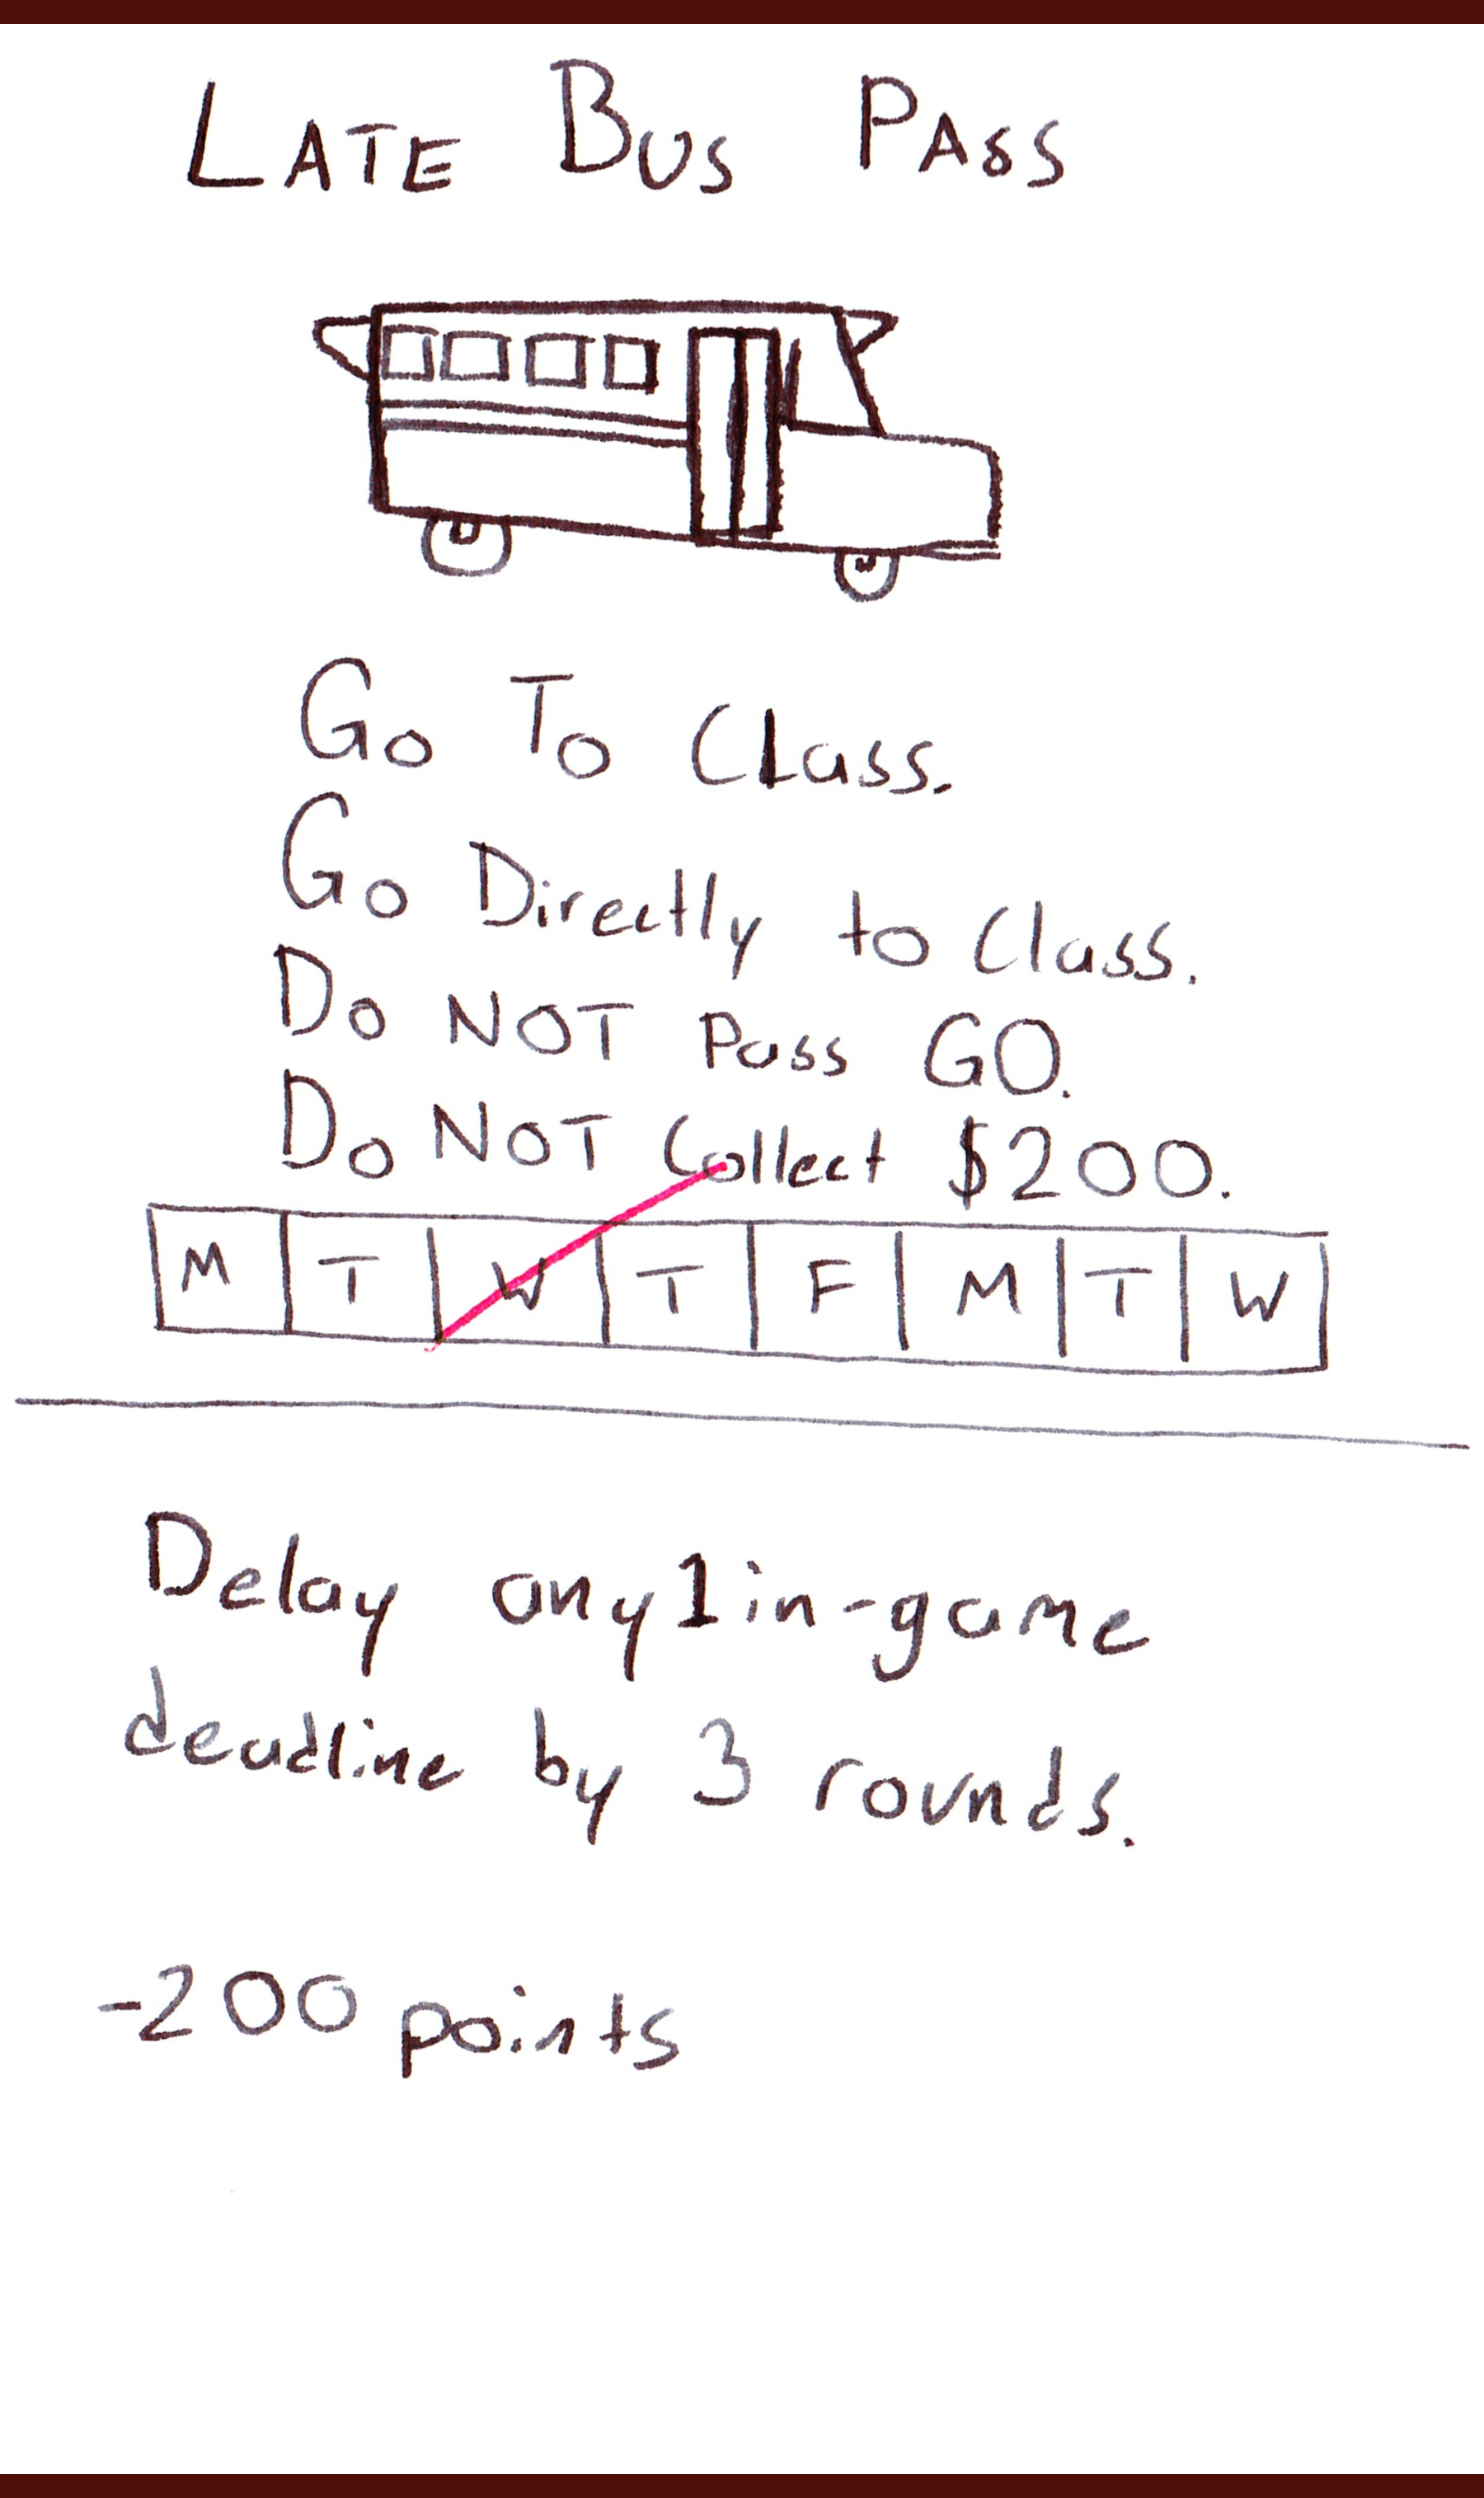 LATE BUS PASS
Go To Class.
Go Directly to Class.
Do NOT Pass GO.
Do NOT Collect $200.
M T W T F M T W
Delay any 1 in-game
deadline by 3 rounds.
-200 points